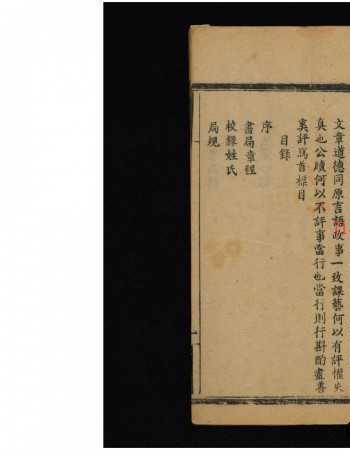 文章道德同原言語政事一致課藝何以有評懼失
真也公牘何以不評事當行也當行則行斟酌盡善
奚評焉首標目
目錄
序
書局章程
校錄姓氏
局規